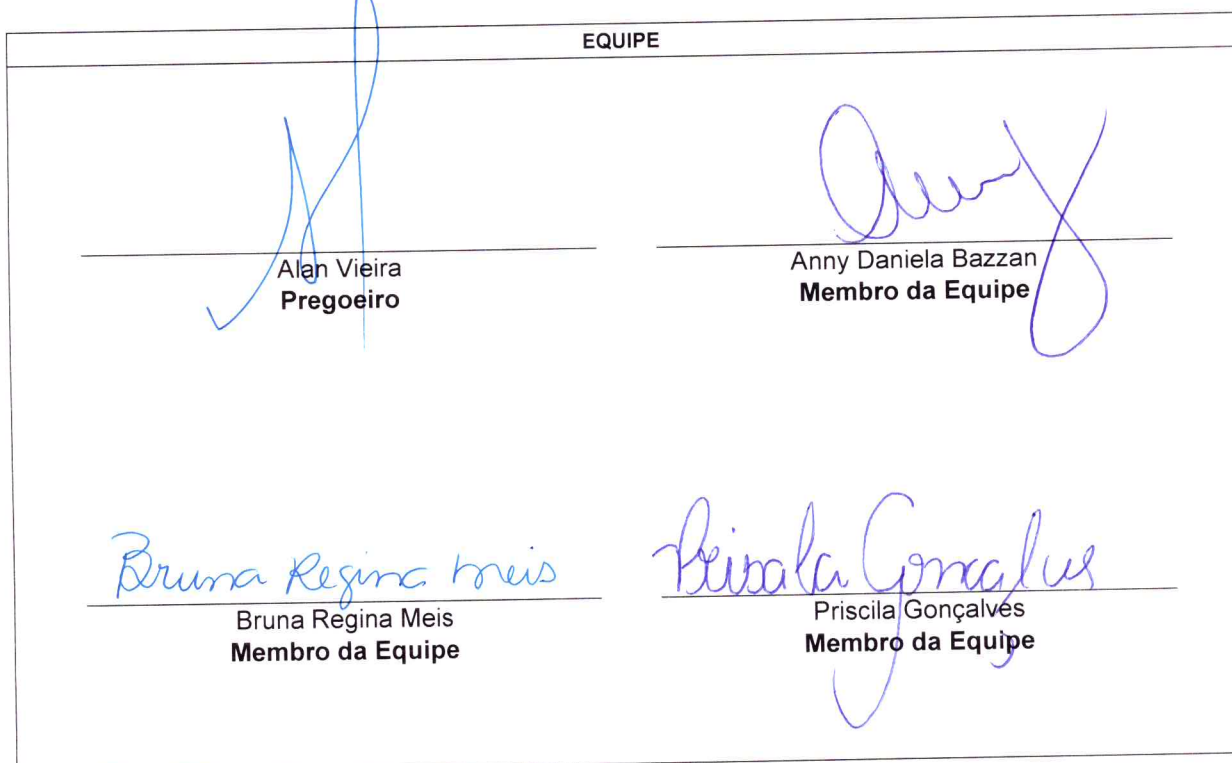 EQUIPE
Alan Vieira
Pregoeiro
Anny
Anny Daniela Bazzan
Membro da Equipe
Bruna Regina Meis
Bruna Regina Meis
Membro da Equipe
Priscila Gonçalves
Priscila Gonçalves
Membro da Equipe